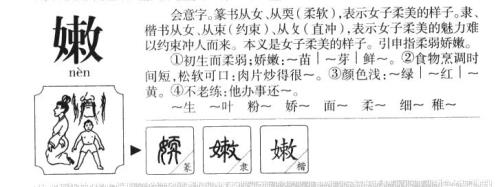 嫩
nèn
会意字。篆书从女、从耎(柔软),表示女子柔美的样子。隶、
楷书从女、从束(约束)、从攵(直冲),表示女子柔美的魅力难
以约束冲人而来。本义是女子柔美的样子。引申指柔弱娇嫩。
①初生而柔弱;娇嫩:~苗|~芽|鲜~。②食物烹调时
间短,松软可口:肉片炒得很~。③颜色浅:~绿|~红|~
黄。④不老练:他办事还~。
~生 ~叶 粉~ 娇~ 面~ 柔~ 细~ 稚~
媆 篆
嫩 隶
嫩 楷